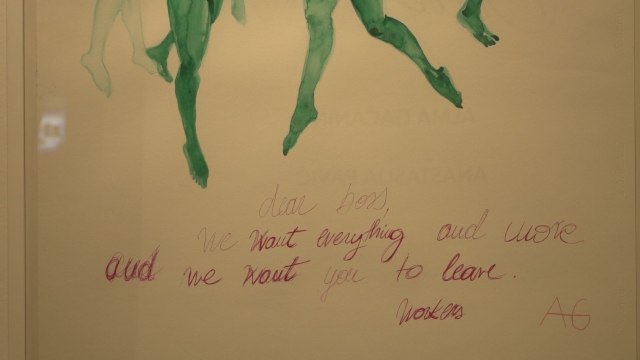 dear boss,
we want everything and more
and we want you to leave.
workers AG